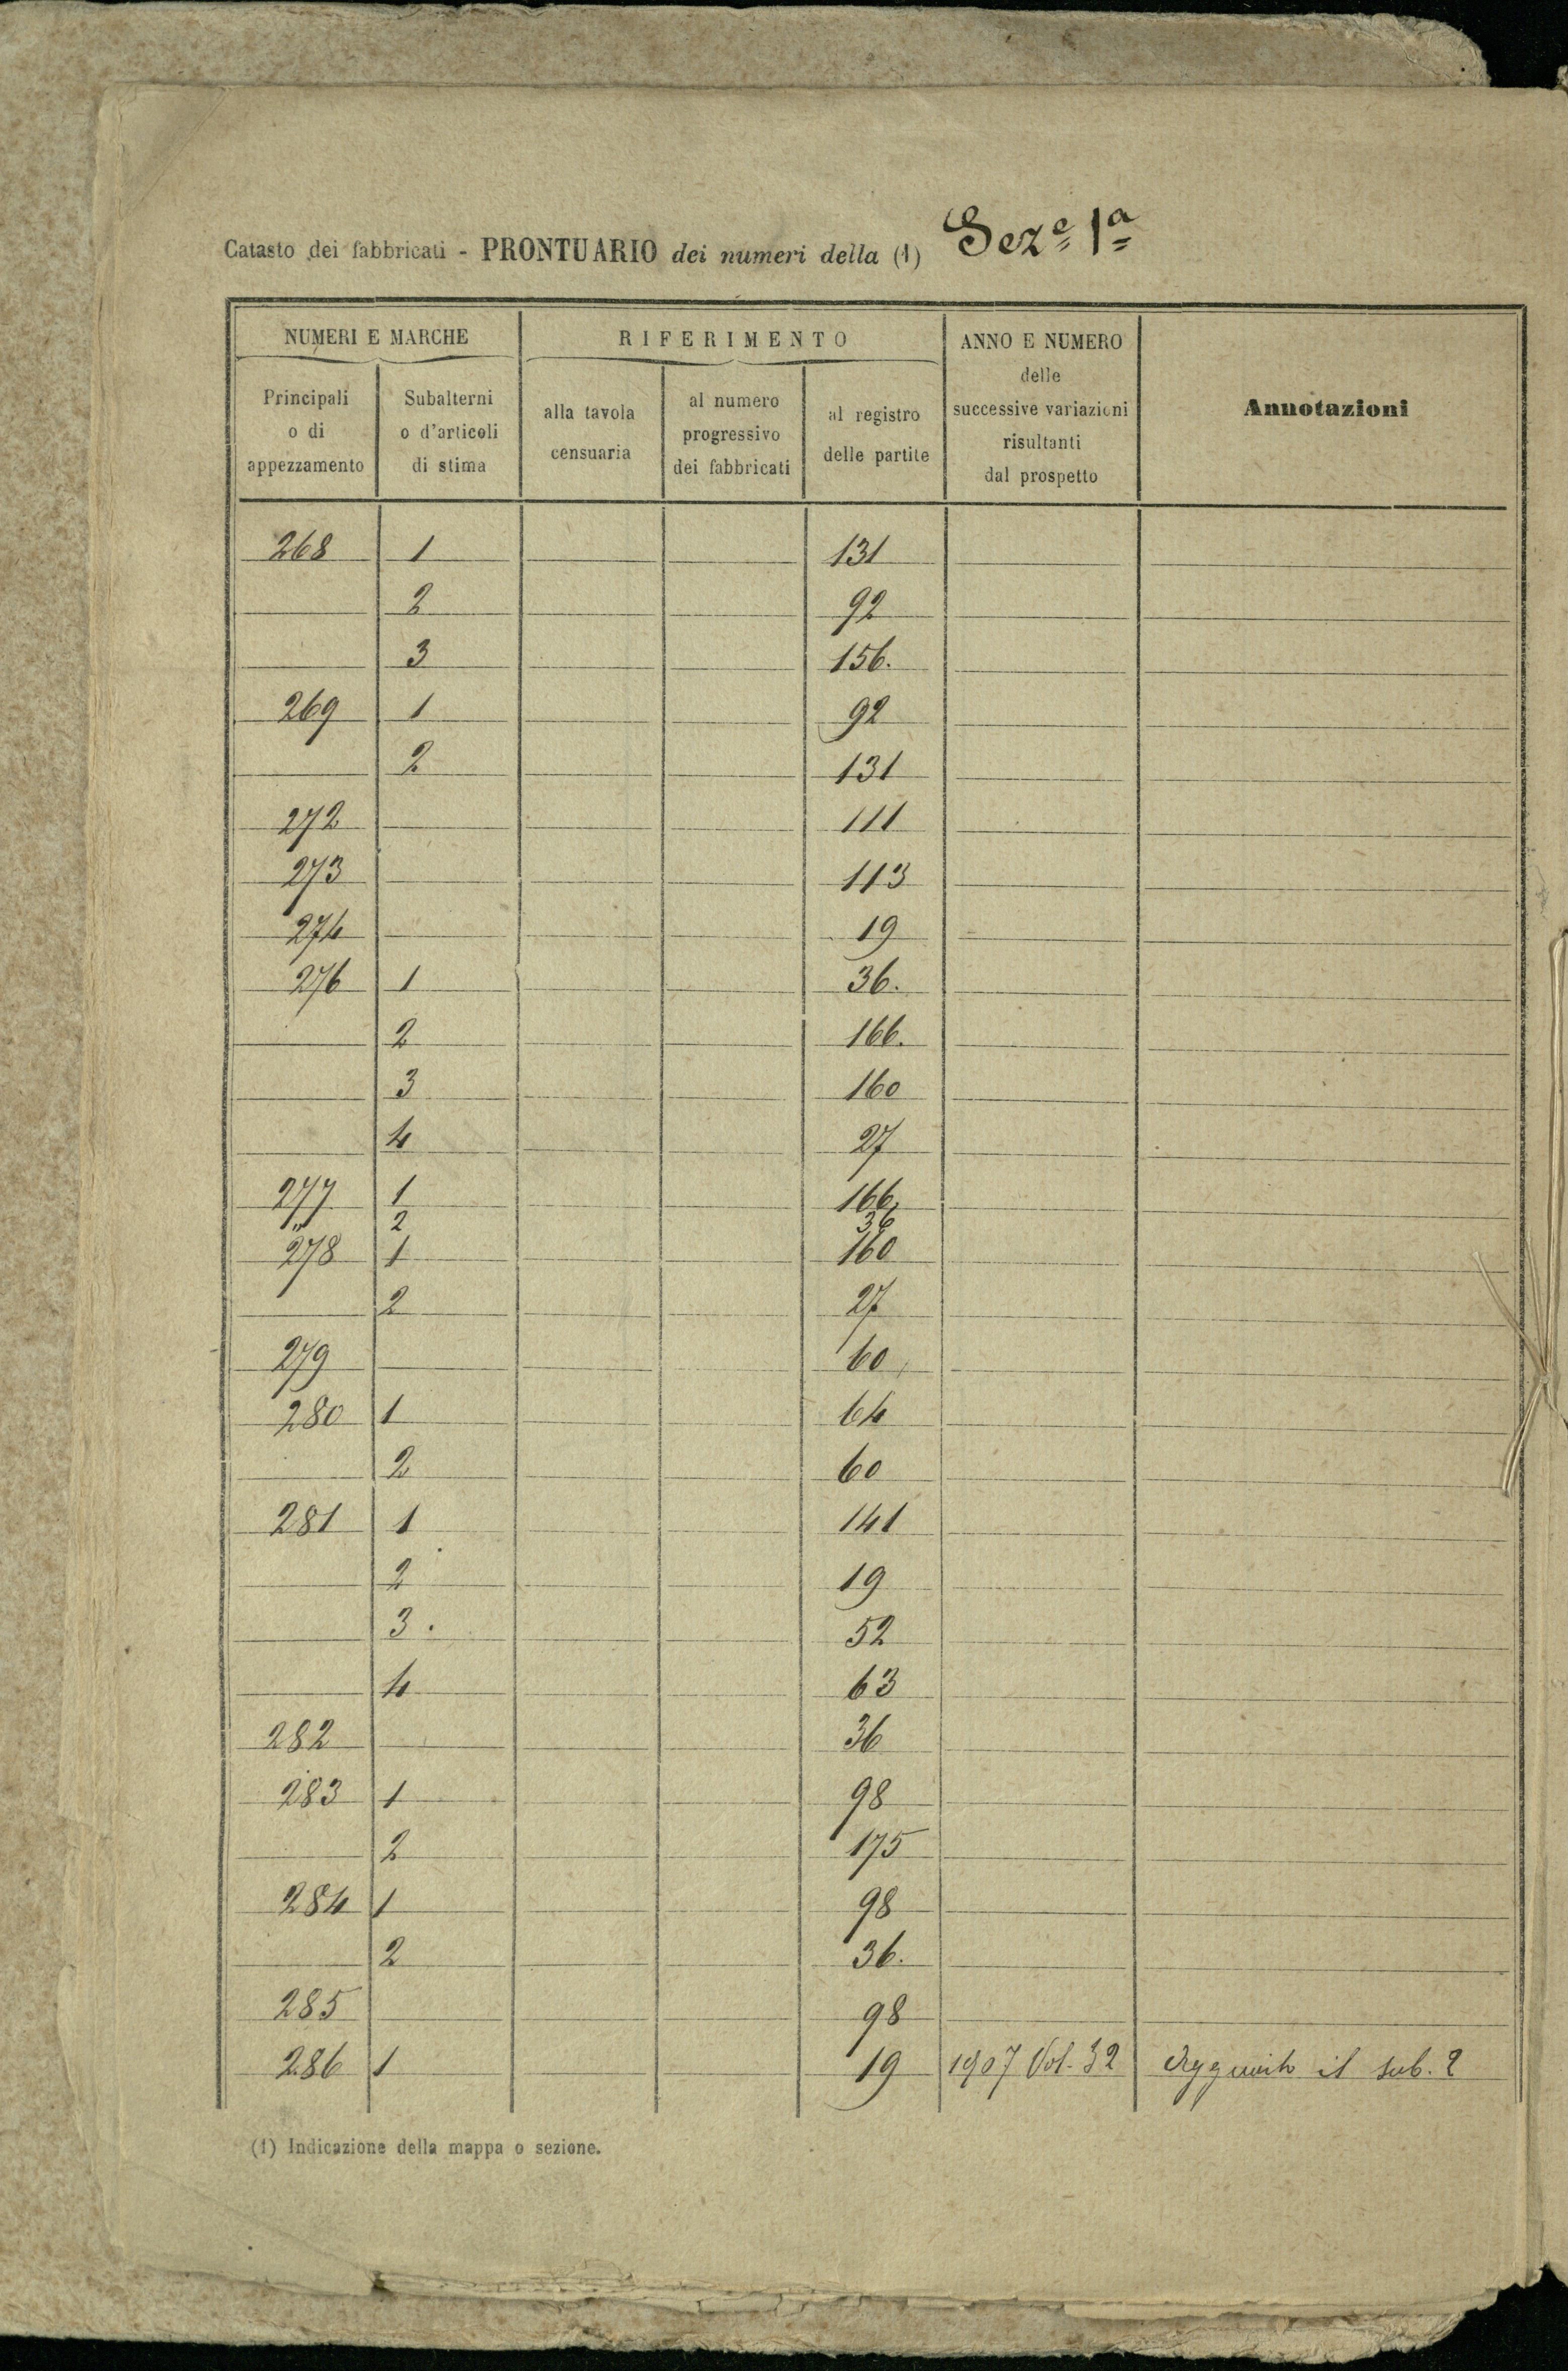 Catasto dei fabbricati - PRONTUARIO dei numeri della (1) Seze 1a
NUMERI E MARCHE
Principali o di appezzamento
Subalterni o d'articoli di stima
RIFERIMENTO
alla tavola censuaria
al numero progressivo dei fabbricati
al registro delle partite
ANNO E NUMERO delle successive variazioni risultanti dal prospetto
Annotazioni
268 1 131
2 92
3 156.
269 1 92
2 131
272 111
273 113
274 19
276 1 36.
2 166.
3 160
4 27
277 1 166
" 2 36
278 1 160
2 27
279 60
280 1 64
2 60
281 1 141
2 19
3. 52
4 63
282 36
283 1 98
2 175
284 1 98
2 36.
285 98
286 1 19 1907 Vol. 32 il sub. 2
(1) Indicazione della mappa o sezione.